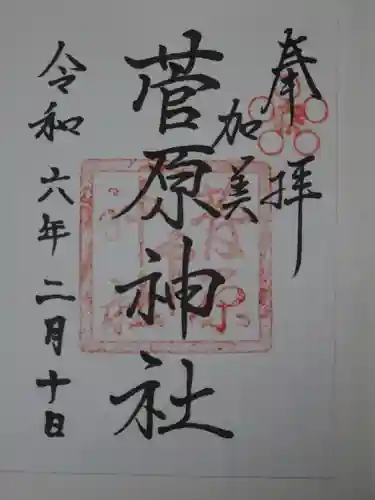 奉拝
加美
菅原神社
令和六年二月十日